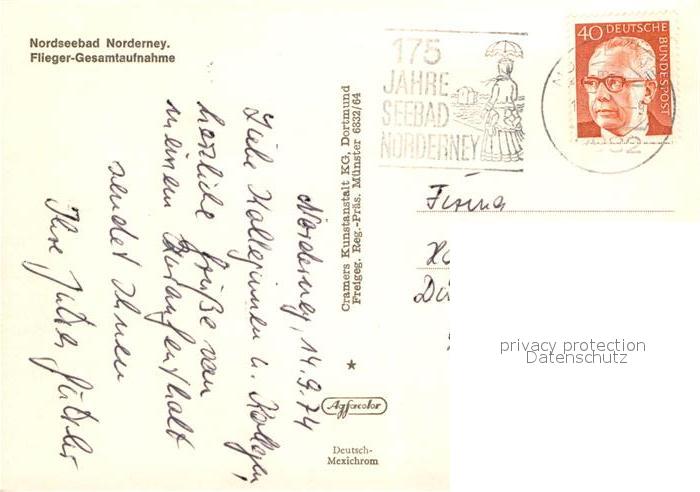 Nordseebad Norderney.
Flieger-Gesamtaufnahme
175
JAHRE
SEEBAD
NORDERNEY
40 DEUTSCHE
BUNDESPOST
Cramers Kunstanstalt KG, Dortmund
Freigeg. Reg.-Präs. Münster 6832/64
Agfacolor
Deutsch-
Mexichrom
Norderney, 14.9.74
Liebe Kolleginnen u. Kollegen,
herzliche Grüße von
meinem Kuraufenthalt
sendet Ihnen
Ihre Jutta
Firma
privacy protection
Datenschutz